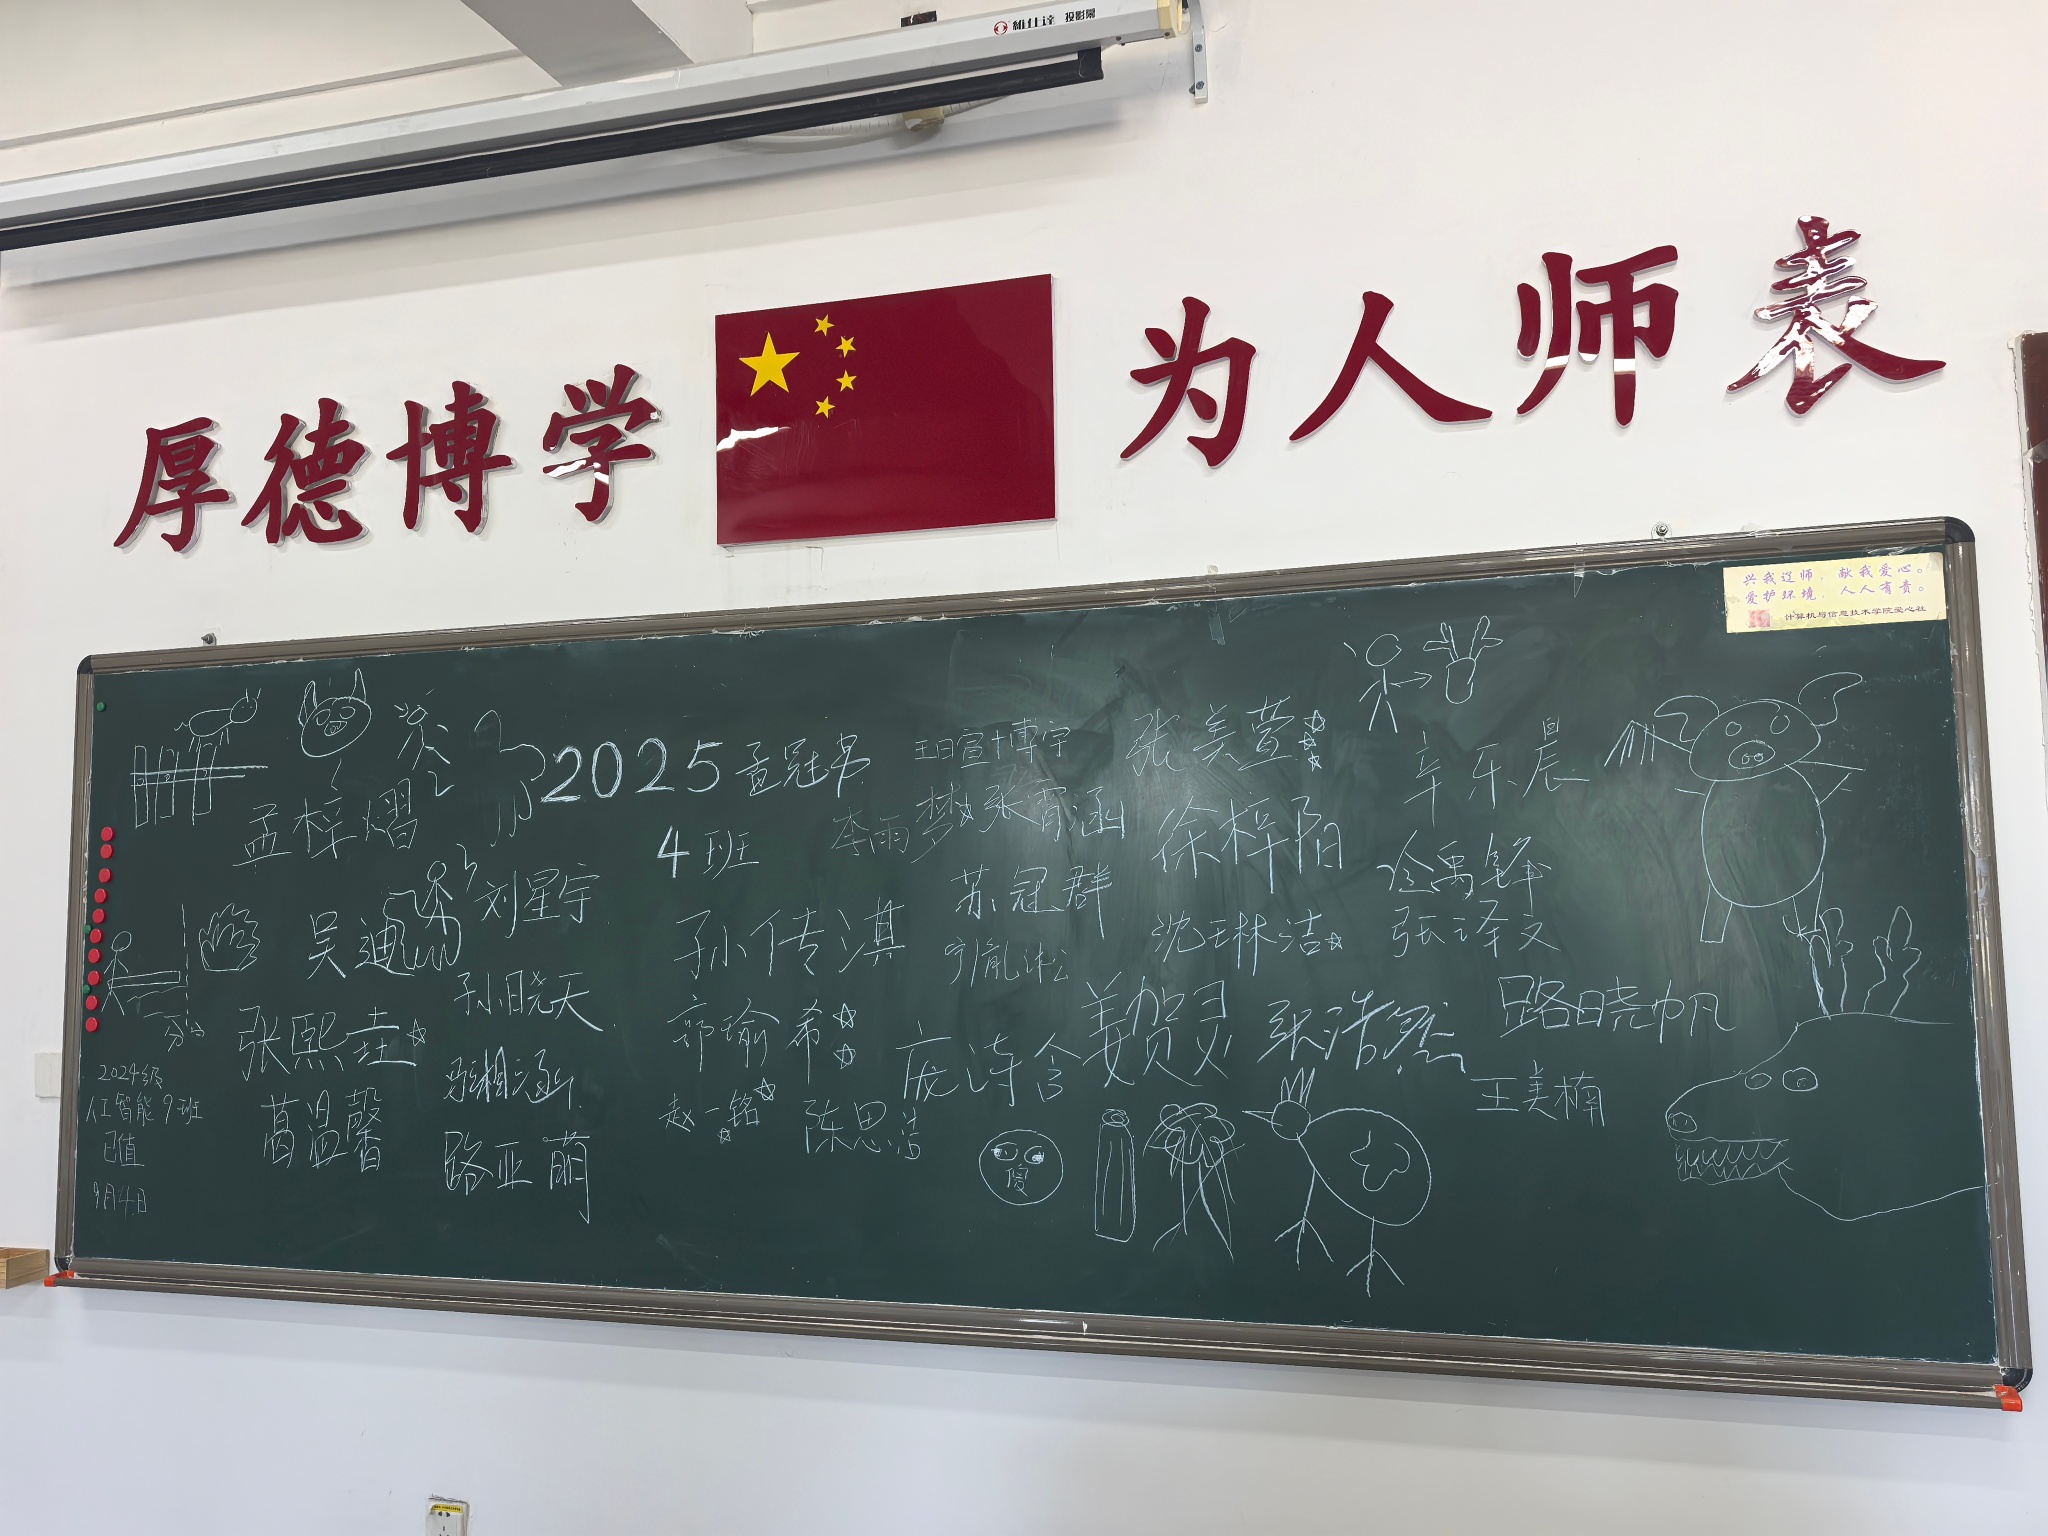 维仕达 投影幕
厚德博学 为人师表
兴我辽师，献我爱心。
爱护环境，人人有责。
计算机与信息技术学院爱心社
2025
4班
孟冠书
张美萱
辛乐晨
孟梓熠
李雨梦
张宵涵
徐梓阳
刘星宇
苏冠群
吴迪
孙传淇
沈琳洁
张译文
孙晓天
姜贺灵
张浩然
路晓帆
张熙垚
郭瑜希
庞诗含
王美楠
2024级
人工智能9班
已值
9月4日
葛温馨
赵一铭
陈思洁
路亚萌
傻